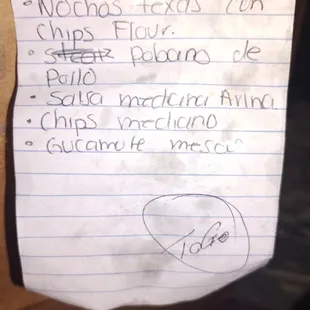 • Nachos texas con
chips Flour.
• steak pobano de
pollo
• Salsa mediana Arina
• Chips mediano
• Gucamole mesa
ToGo